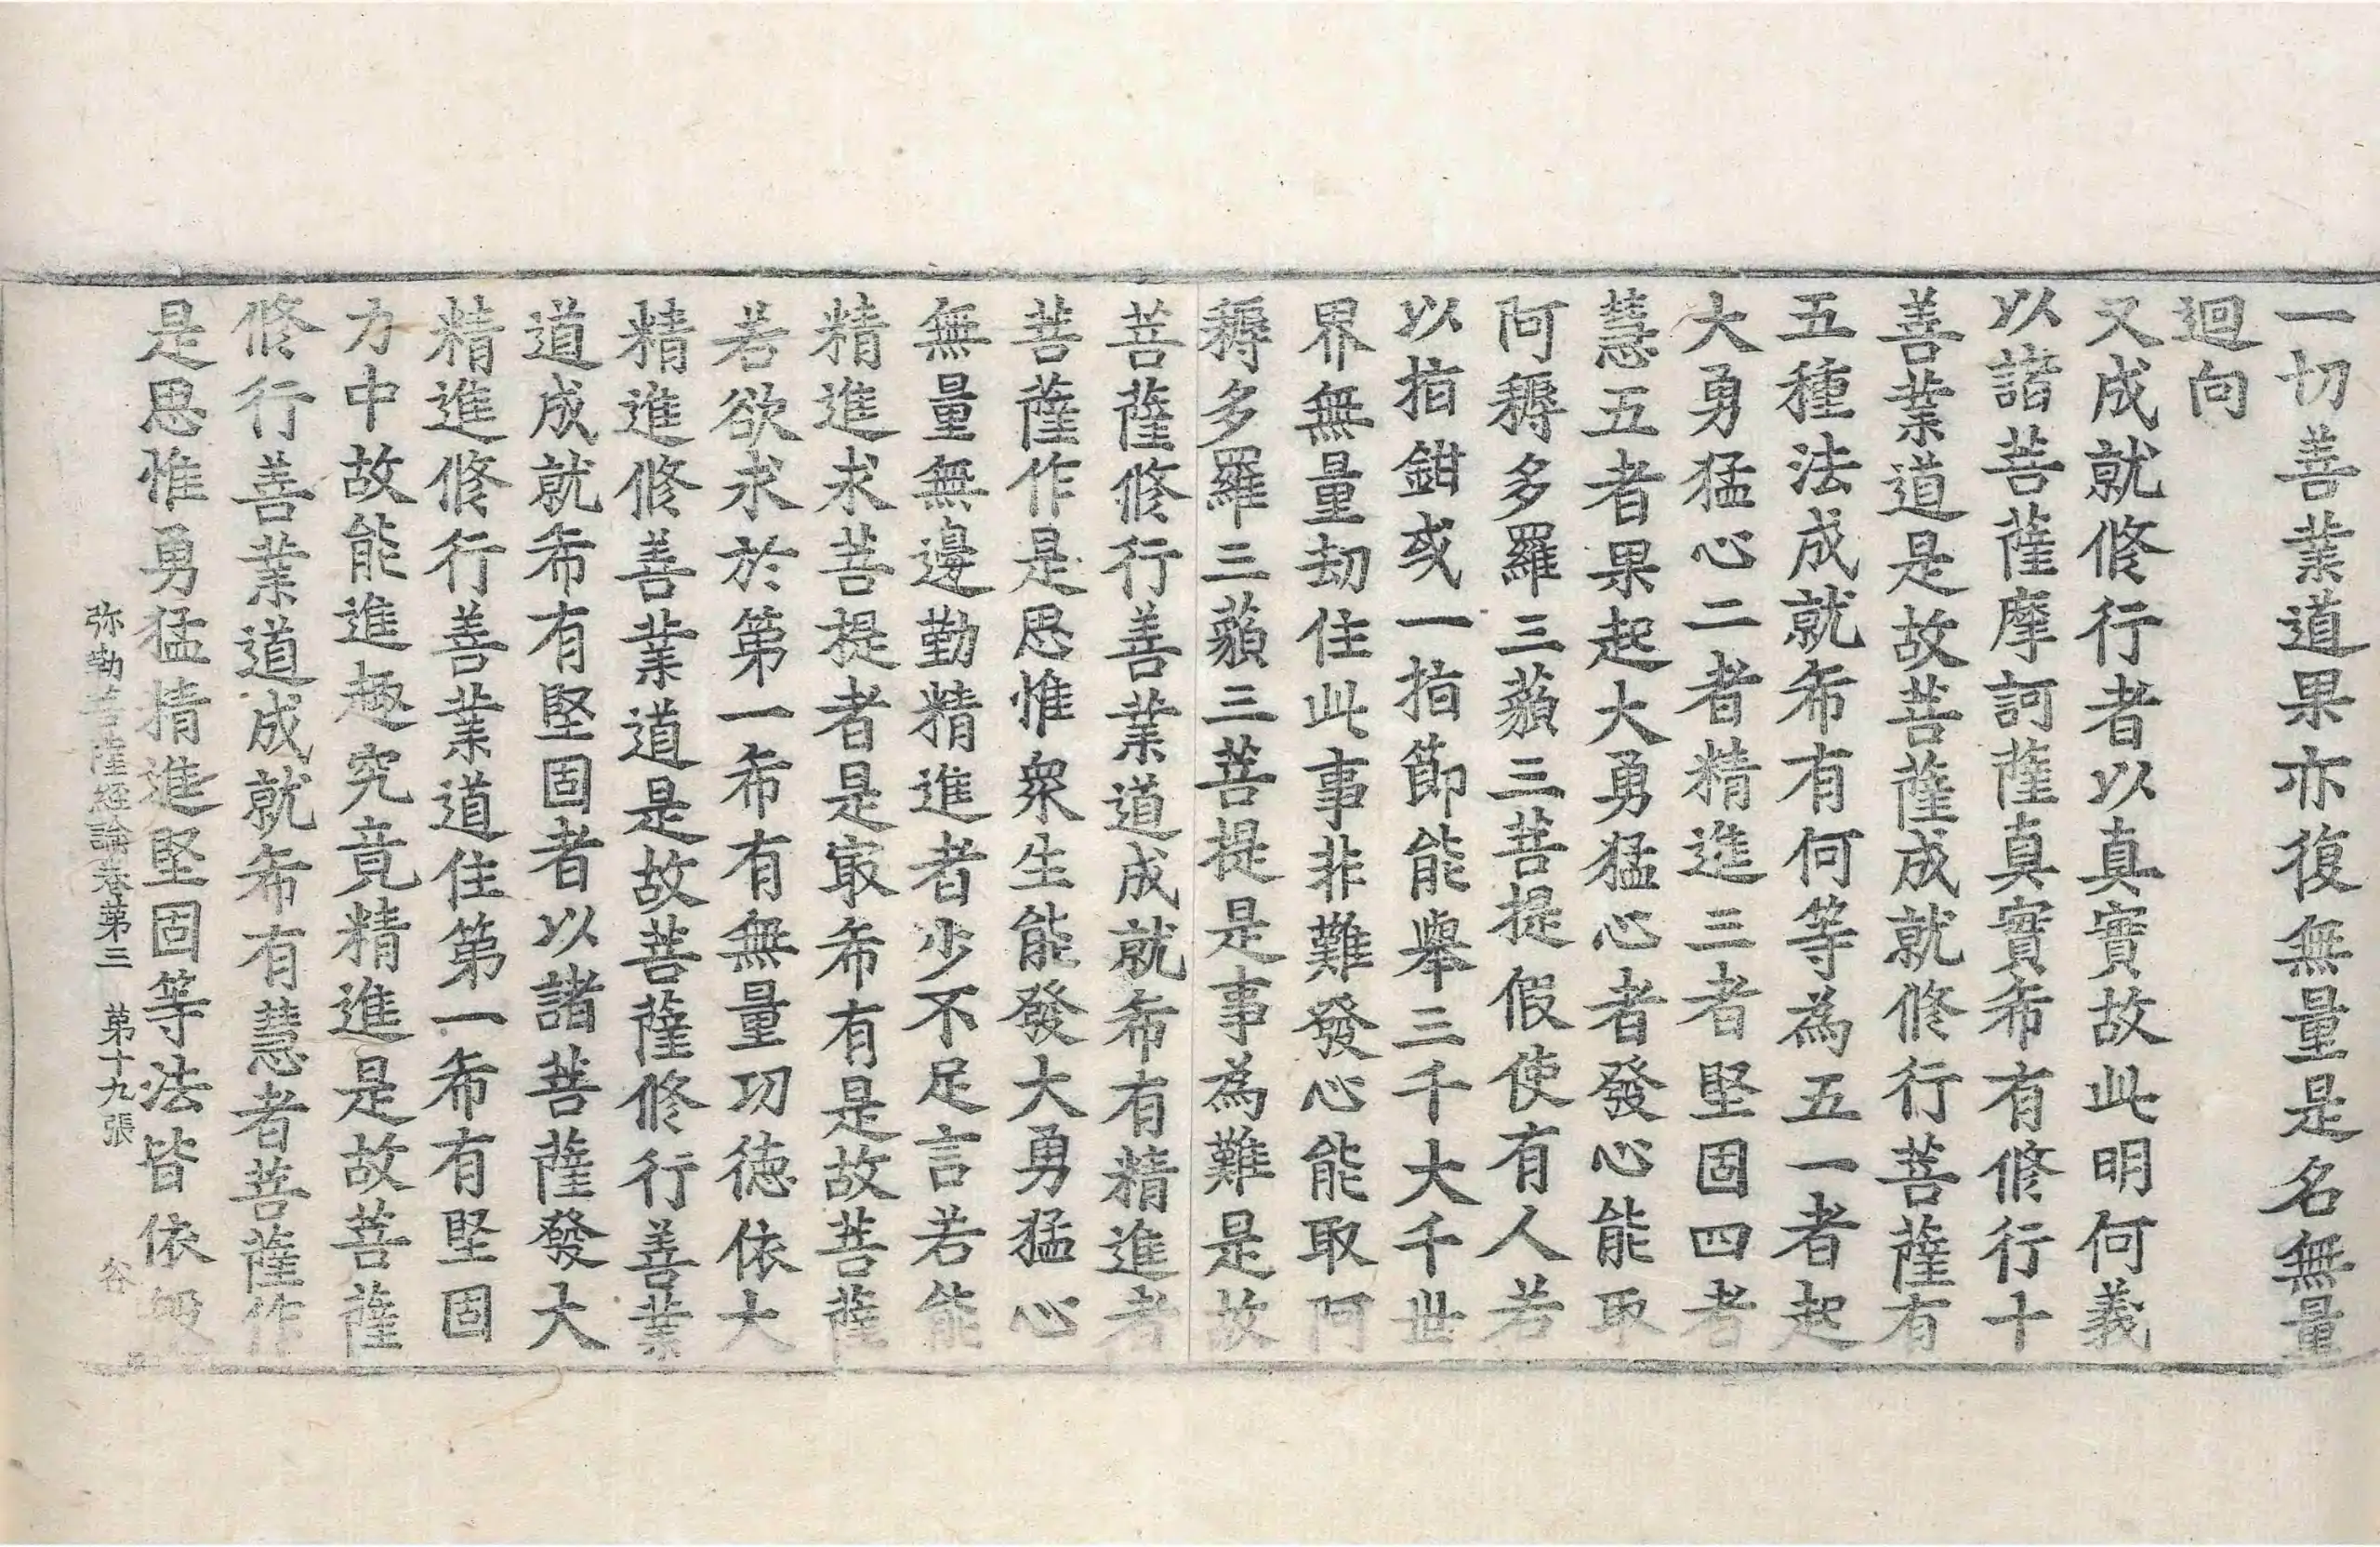 一切善業道果亦復無量是名無量
迴向
又成就修行者以真實故此明何義
以諸菩薩摩訶薩真實希有修行十
善業道是故菩薩成就修行菩薩有
五種法成就希有何等為五一者起
大勇猛心二者精進三者堅固四者
慧五者果起大勇猛心者發心能取
阿耨多羅三藐三菩提假使有人若
以指鉗或一指節能舉三千大千世
界無量劫住此事非難發心能取阿
耨多羅三藐三菩提是事為難是故
菩薩修行善業道成就希有精進者
菩薩作是思惟衆生能發大勇猛心
無量無邊勤精進者少不足言若能
精進求菩提者是㝡希有是故菩薩
若欲求於第一希有無量功德依大
精進修善業道是故菩薩修行善業
道成就希有堅固者以諸菩薩發大
精進修行善業道住第一希有堅固
力中故能進趣究竟精進是故菩薩
修行善業道成就希有慧者菩薩作
是思惟勇猛精進堅固等法皆依
弥勒菩薩經論卷第三 第十九張 谷